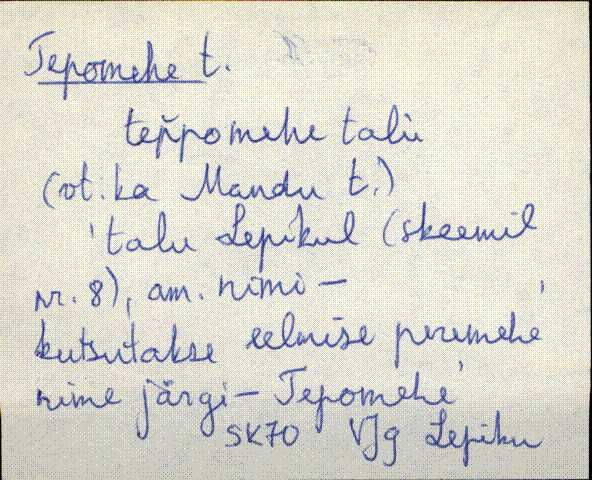 Tepomehe t.
tep̆pomehe talù
(vt. ka Mandu t.)
'talu Lepikul (skeemil
nr. 8), am. nimi –
kutsutakse eelmise peremehe
nime järgi – Tepomehe'
SK70 VJg Lepiku